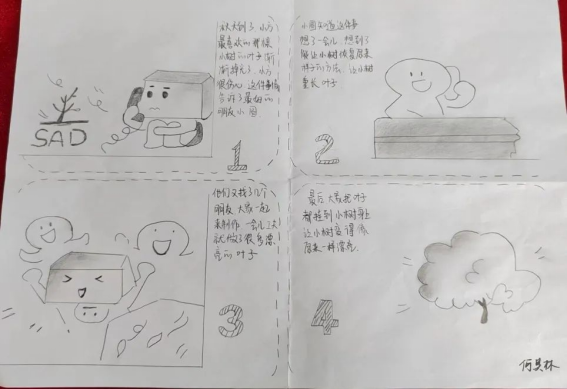 秋天到了,小方
最喜欢的那棵
小树的叶子渐
渐掉完了,小方
很伤心,这件事情
告诉了最好的
朋友小圆
SAD
1
小圆知道这件事
想了一会儿,想到了
能让小树恢复原来
样子的方法,让小树
重长叶子
2
他们又找了几个
朋友大家一起
来制作 一会儿工夫
就做了很多漂
亮的叶子
3
最后大家把叶子
都挂到小树身上
让小树变得
原来一样漂亮
4